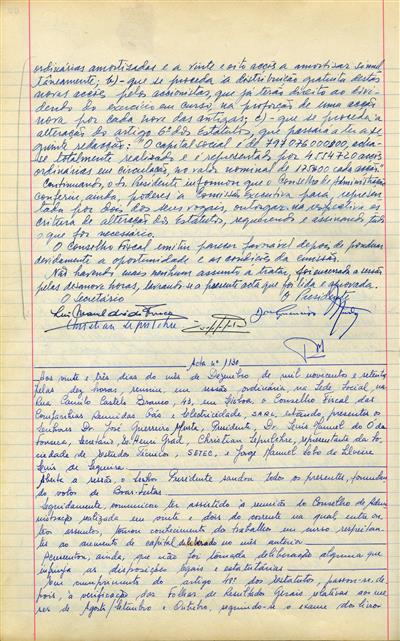 ordinárias amortizadas e a vinte e oito acções a amortizar simul
tâneamente; b) - que se proceda à distribuição gratuita destas
novas acções pelos accionistas, que já terão direito ao divi-
dendo do exercício em curso, na proporção de uma acção
nova por cada nove das antigas; c) - que se proceda à
alteração do artigo 6º dos Estatutos, que passaria a ter a se-
guinte redacção: "O capital social é de 797.076.000$00, acha-
se totalmente realizado e é representado por 4.554.720 acções
ordinárias em circulação, no valor nominal de 175$00 cada acção"
Continuando, o Sr. Presidente informou que o Conselho de Administração
conferiu, ainda, poderes à Comissão Executiva para, represen-
tada por dois dos seus vogais, outorgar na respectiva es
critura de alteração dos Estatutos, requerendo e assinando tudo
o que for necessário.
O Conselho Fiscal emitiu parecer favorável depois de ponderar
devidamente a oportunidade e as condições da emissão.
Não havendo mais nenhum assunto a tratar, foi encerrada a sessão
pelas dezanove horas, lavrando-se a presente acta que foi lida e aprovada.
O Secretário O Presidente
Christian Lepulchre
Acta nº 1130
Aos vinte e três dias do mês de Dezembro de mil novecentos e setenta,
pelas dez horas, reuniu em sessão ordinária na Sede Social, na
Rua Camilo Castelo Branco, 43, em Lisboa, o Conselho Fiscal das
Companhias Reunidas Gás e Electricidade, SARL, estando presentes os
Senhores Dr. José Guerreiro Murta, Presidente, Dr. Luís Manuel do O da
Fonseca, Secretário, Christian Lepulchre, representante da So-
ciedade de Estudos Técnicos, SETEC, e Jorge Manuel Lobo da Silveira
Luís de Sequeira.
Aberta a sessão, o Senhor Presidente saudou todos os presentes, formulando
votos de Boas-Festas.
Seguidamente, comunicou ter assistido à reunião do Conselho de Admi
nistração realizada em vinte e dois do corrente na qual, entre ou
tros assuntos, tomou conhecimento do trabalho em curso, respeitan-
te ao aumento de capital deliberado no mês anterior.
Acrescentou, ainda, que não foi tomada deliberação alguma que
infrinja as disposições legais e estatutárias.
Em cumprimento do artigo 48º dos Estatutos, passou-se, de-
pois, à verificação das folhas de Resultados Gerais relativas aos me-
ses de Agosto, Setembro e Outubro, seguindo-se o exame dos livros